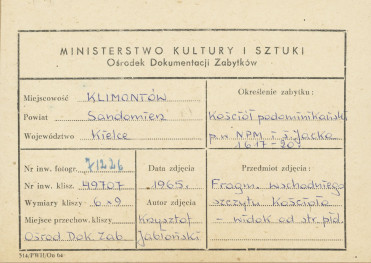 MINISTERSTWO KULTURY I SZTUKI
Ośrodek Dokumentacji Zabytków
Miejscowość KLIMONTÓW
Powiat Sandomierz
Województwo Kielce
Określenie zabytku:
Kościół podominikański
p.w. NPM i ś. Jacka
1617-20r
Nr inw. fotogr. 71226
Nr inw. klisz. 49707
Wymiary kliszy 6x9
Miejsce przechow. kliszy
Ośrod. Dok. Zab.
Data zdjęcia
1965.
Autor zdjęcia
Krzysztof
Jabłoński
Przedmiot zdjęcia:
Fragm. wschodniego
szczytu Kościoła
– widok od str. płd.